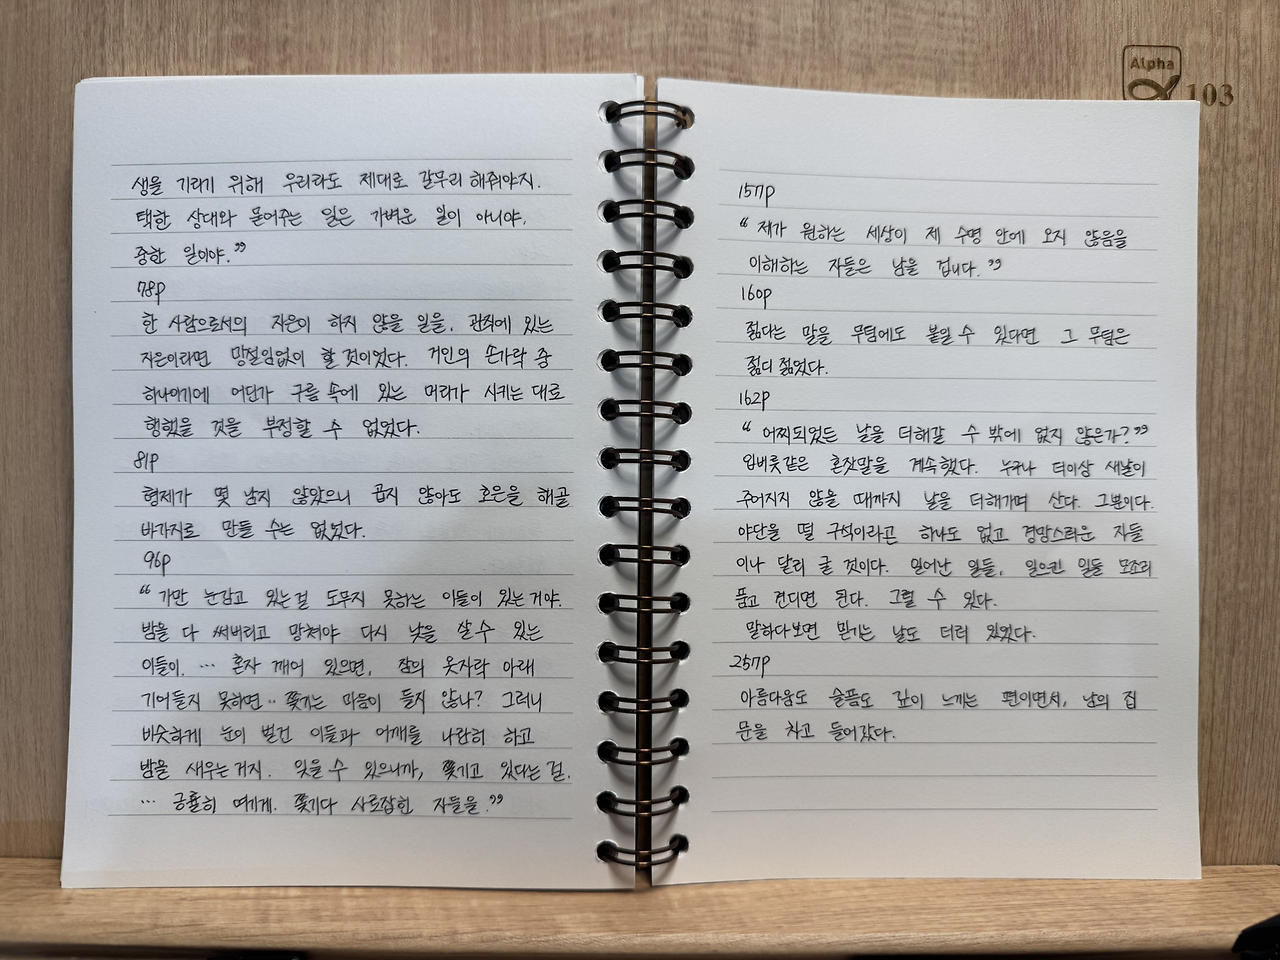 생을 기리기 위해 우리라도 제대로 갈무리 해줘야지.
택한 상대와 묻어주는 일은 가벼운 일이 아니야.
중한 일이야.”
78p
한 사람으로서의 자은이 하지 않을 일을, 관직에 있는
자은이라면 망설임없이 할 것이었다. 거인의 손가락 중
하나이기에 어딘가 구름 속에 있는 머리가 시키는 대로
행했을 것을 부정할 수 없었다.
81p
형제가 몇 남지 않았으니 곱지 않아도 호은을 해골
바가지로 만들 수는 없었다.
96p
“가만 눈감고 있는걸 도무지 못하는 이들이 있는거야.
밤을 다 써버리고 망쳐야 다시 낮을 살 수 있는
이들이. … 혼자 깨어 있으면, 잠의 옷자락 아래
기어들지 못하면‥ 쫓기는 마음이 들지 않나? 그러니
비슷하게 눈이 벌건 이들과 어깨를 나란히 하고
밤을 새우는거지. 잊을 수 있으니까, 쫓기고 있다는 걸.
… 긍휼히 여기게. 쫓기다 사로잡힌 자들을.”
Alpha
103
157p
“제가 원하는 세상이 제 수명 안에 오지 않음을
이해하는 자들은 남을 겁니다.”
160p
젊다는 말을 무덤에도 붙일 수 있다면 그 무덤은
젊디 젊었다.
162p
“어찌되었든 날을 더해갈 수 밖에 없지 않은가?”
입버릇같은 혼잣말을 계속했다. 누구나 더이상 새날이
주어지지 않을 때까지 날을 더해가며 산다. 그뿐이다.
야단을 떨 구석이라곤 하나도 없고 경망스러운 자들
이나 달리 굴 것이다. 일어난 일들, 일으킨 일들 모조리
품고 견디면 된다. 그럴 수 있다.
말하다보면 믿기는 날도 더러 있었다.
257p
아름다움도 슬픔도 깊이 느끼는 편이면서, 남의 집
문을 차고 들어갔다.